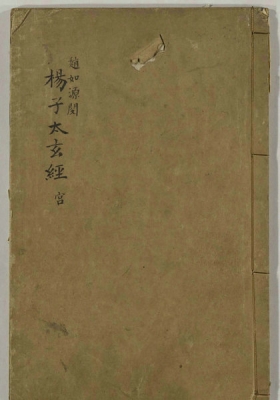 趙如源閱
楊子太玄經 宮